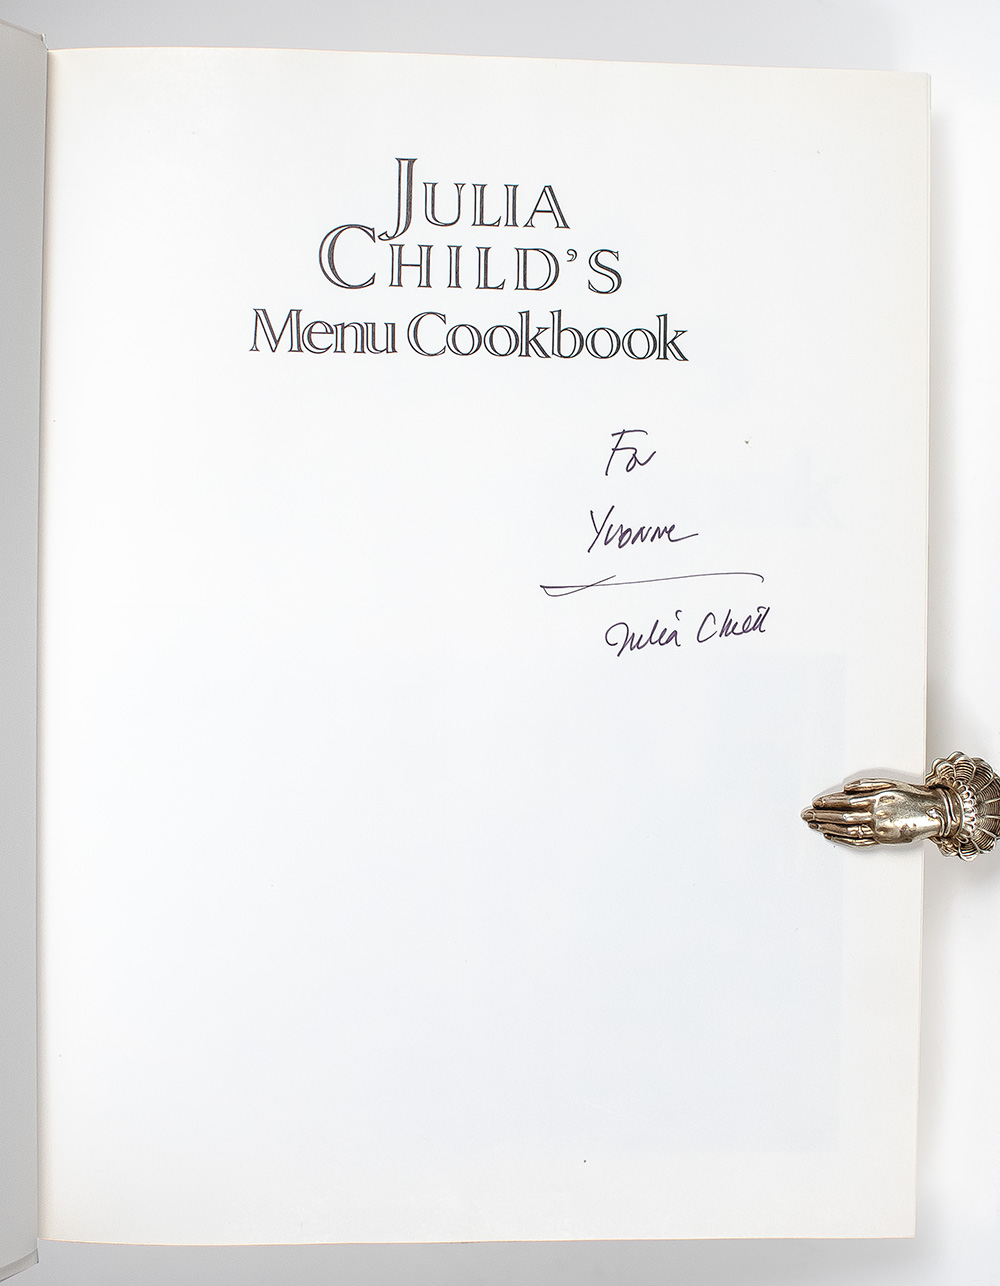 JULIA
CHILD'S
Menu Cookbook
For
Yvonne
Julia Child